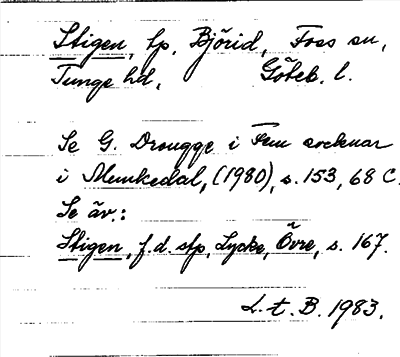 Stigen, tp, Björid, Foss sn,
Tunge hd, Göteb. l.
Se G. Drougge i Fem socknar
i Munkedal, (1980), s. 153, 68 C.
Se äv.:
Stigen, f.d. stp, Lycke, Övre, s. 167.
L. t. B. 1983.